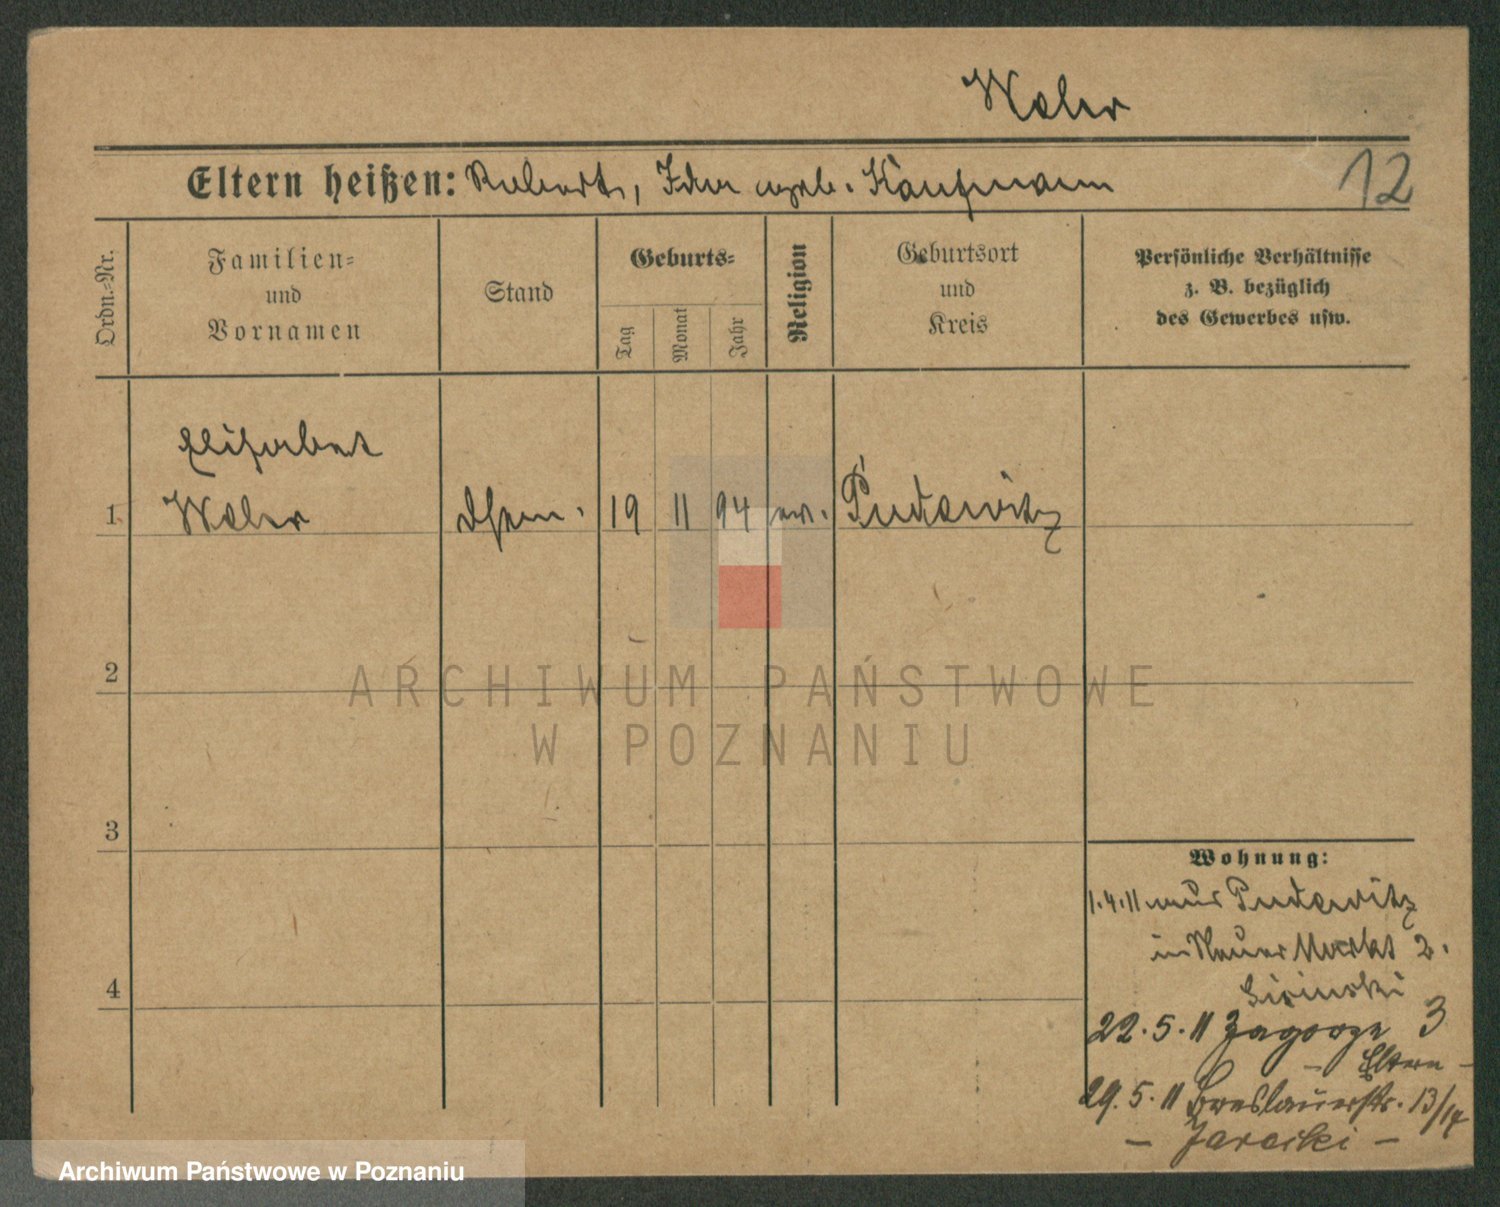 Weler
Eltern heißen: Robert, Ida geb. Kaufmann
12
Ordn.-Nr.
Familien-
und
Vornamen
Stand
Geburts-
Tag
Monat
Jahr
Religion
Geburtsort
und
Kreis
Persönliche Verhältnisse
z. B. bezüglich
des Gewerbes usw.
Elisabet
1. Weler 19 11 94 ev. Pudewitz
2
3
4
Wohnung:
1.4.11 aus Pudewitz
in Neuer Markt 2.
22.5.11 Zagorze 3
- Eltern -
29.5.11 Breslauerstr. 13/14
- Jarecki -
ARCHIWUM PAŃSTWOWE
W POZNANIU
Archiwum Państwowe w Poznaniu